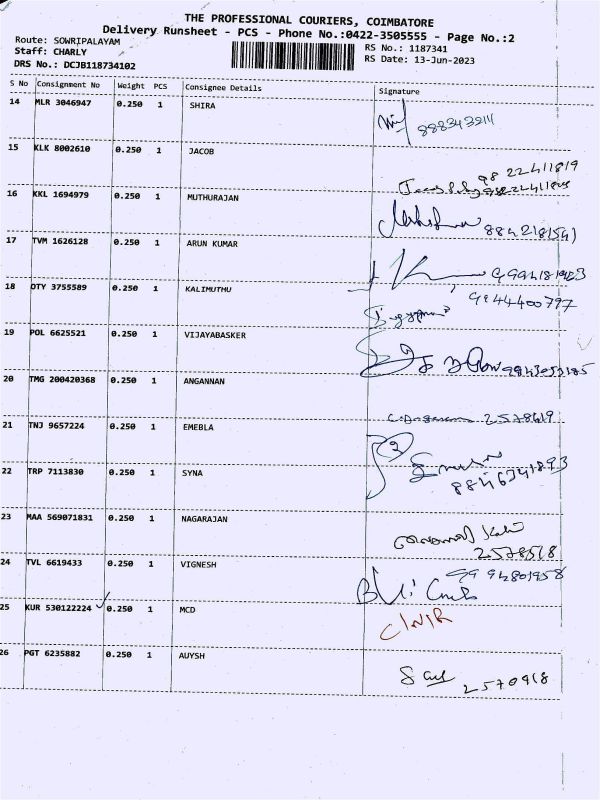 THE PROFESSIONAL COURIERS, COIMBATORE
Delivery Runsheet - PCS - Phone No.:0422-3505555 - Page No.:2
Route: SOWRIPALAYAM
RS No.: 1187341
Staff: CHARLY
RS Date: 13-Jun-2023
DRS No.: DCJB118734102
S No Consignment No Weight PCS Consignee Details Signature
14 MLR 3046947 0.250 1 SHIRA
15 KLK 8002610 0.250 1 JACOB
98 22411819
16 KKL 1694979 0.250 1 MUTHURAJAN
8842181541
17 TVM 1626128 0.250 1 ARUN KUMAR
18 OTY 3755589 0.250 1 KALIMUTHU
9944400797
19 POL 6625521 0.250 1 VIJAYABASKER
20 TMG 200420368 0.250 1 ANGANNAN
2578419
21 TNJ 9657224 0.250 1 EMEBLA
22 TRP 7113830 0.250 1 SYNA
23 MAA 569071831 0.250 1 NAGARAJAN
2578518
24 TVL 6619433 0.250 1 VIGNESH
25 KUR 530122224 0.250 1 MCD
26 PGT 6235882 0.250 1 AUYSH
2570918